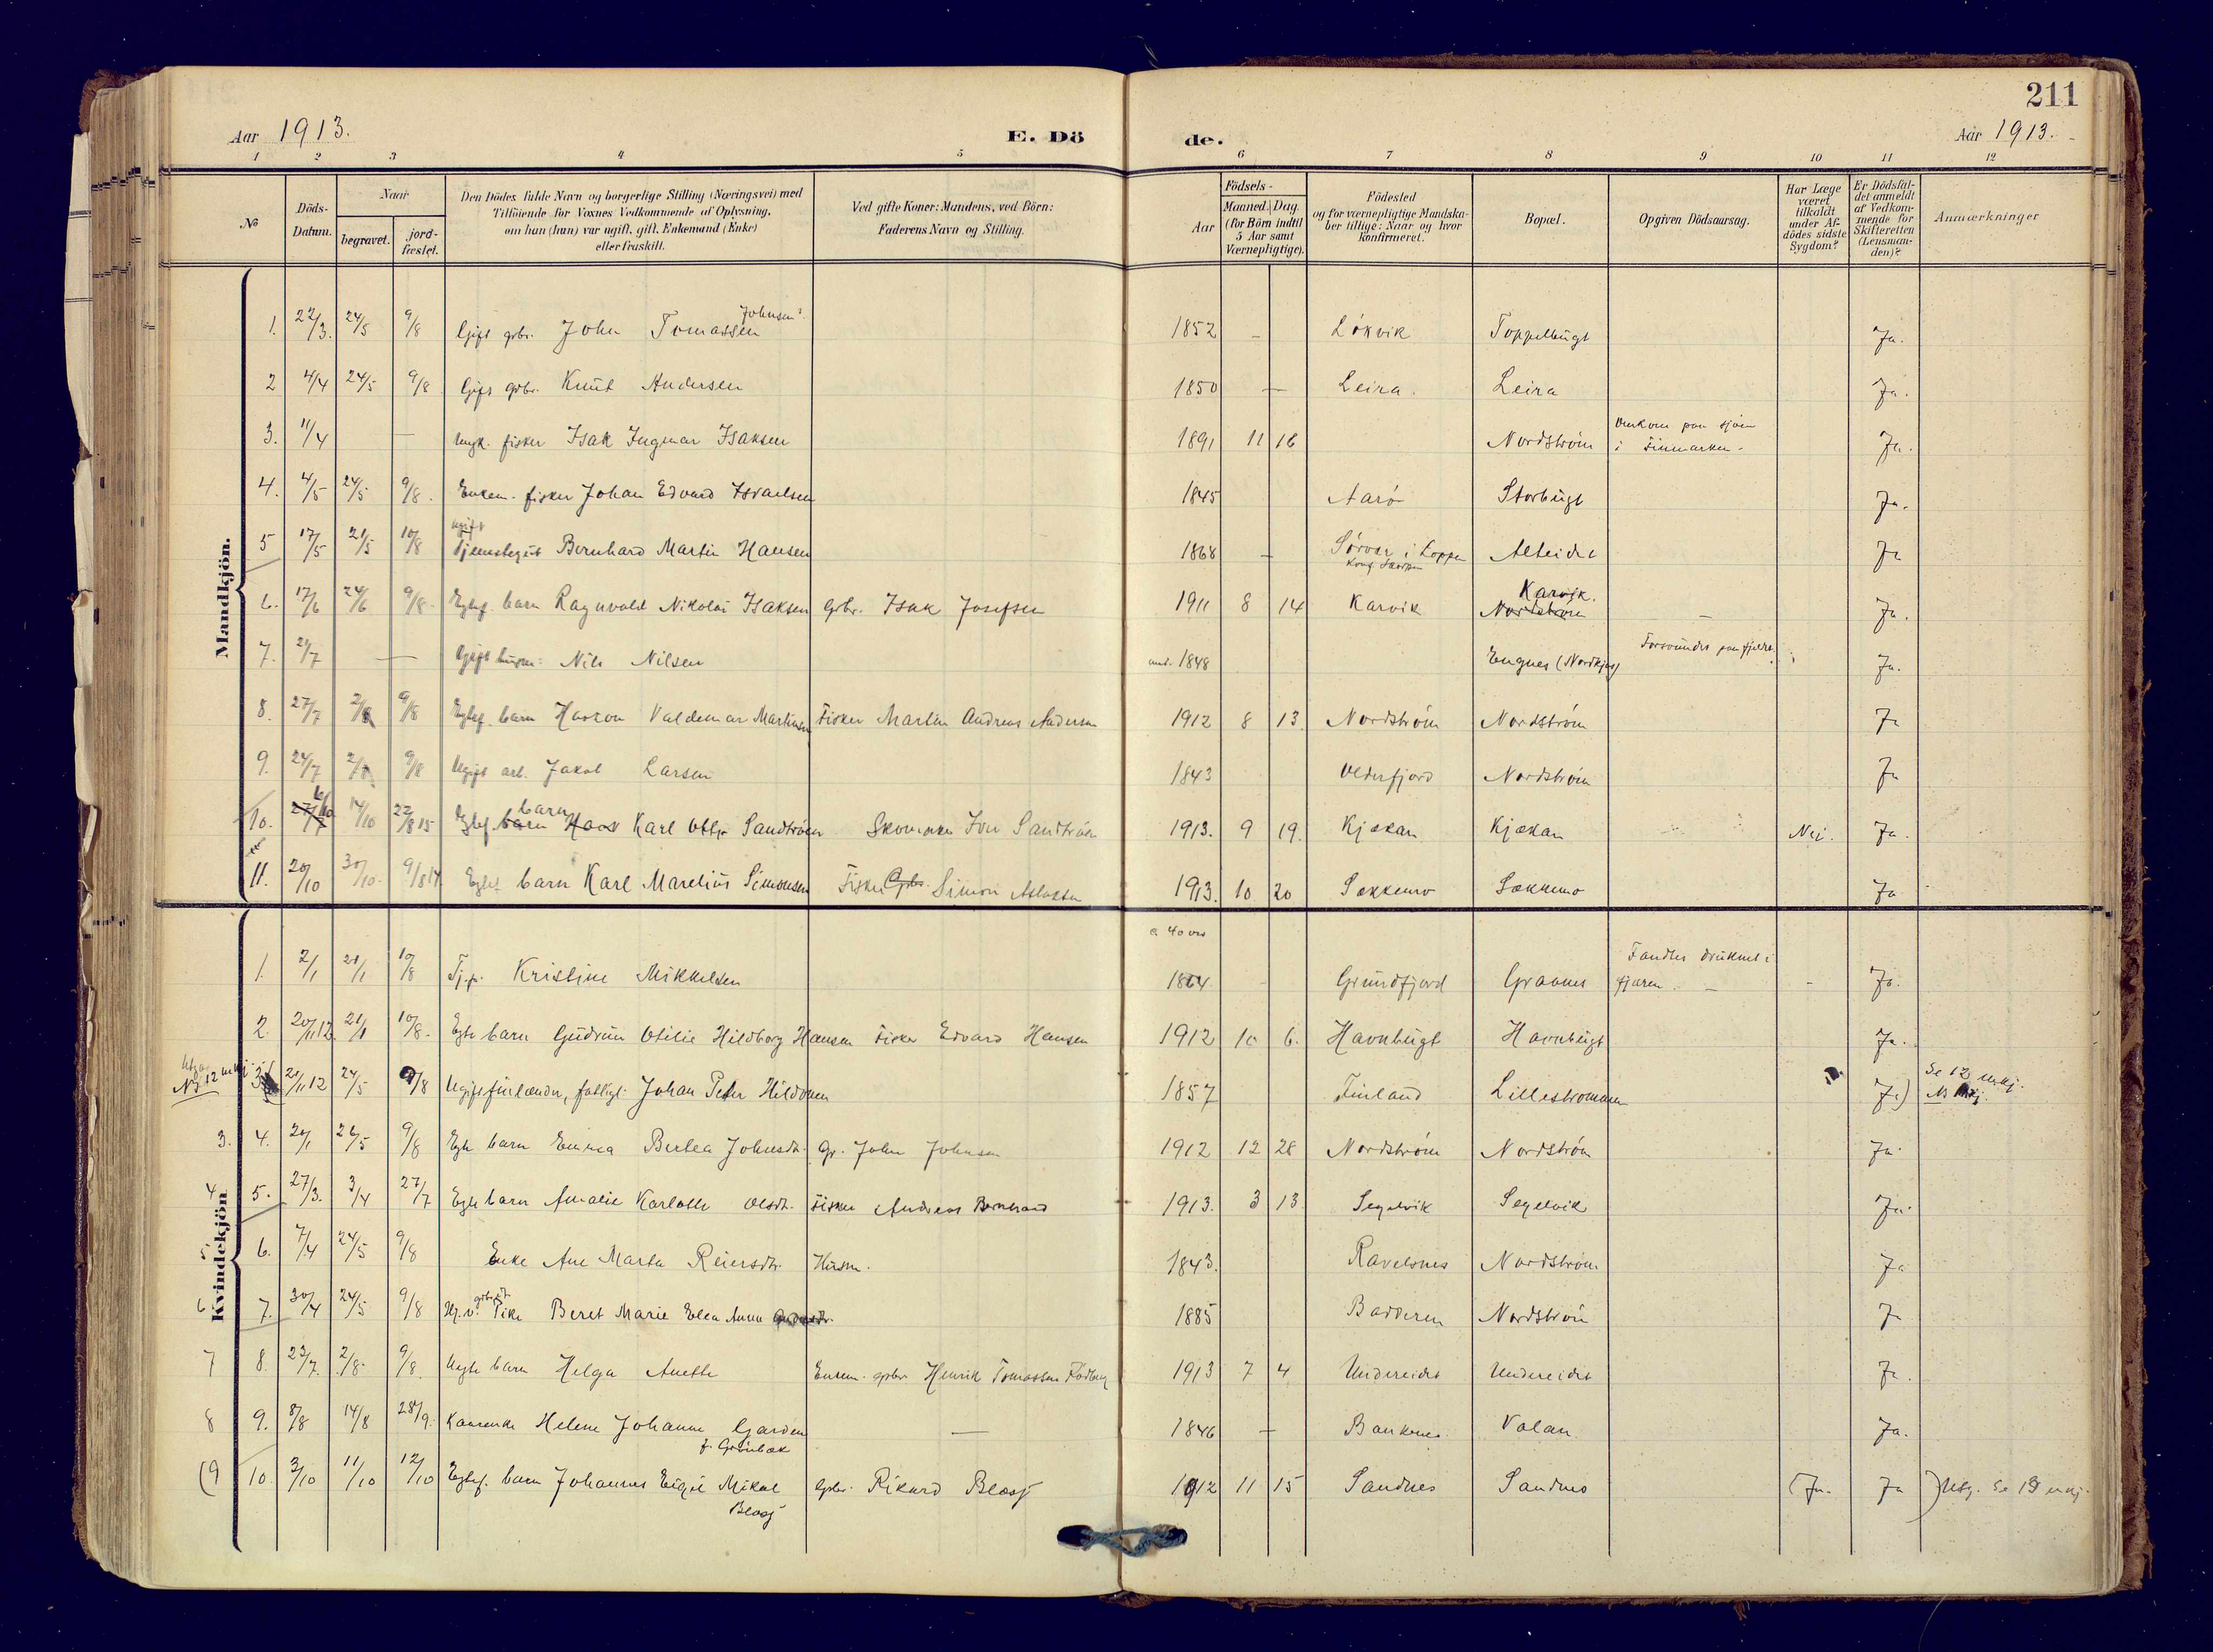 211
Aar 1913.
E. Dö de.
Aar 1913.
1 2 3 4 5 6 7 8 9 10 11 12
№
Döds-Datum.
Naar
begravet.
jord-fæstet.
Den Dödes fulde Navn og borgerlige Stilling (Næringsvei) med
Tilföiende for Voxnes Vedkommende af Oplysning,
om han (hun) var ugift, gift, Enkemand (Enke)
eller fraskilt.
Ved gifte Koner: Mandens, ved Börn:
Faderens Navn og Stilling.
Aar
Födsels-
Maaned. Dag.
(for Börn indtil
5 Aar samt
Værnepligtige).
Födested
og for værnepligtige Mandska-
ber tillige: Naar og hvor
konfirmeret.
Bopæl.
Opgiven Dödsaarsag.
Har Læge
været
tilkaldt
under Af-
dödes sidste
Sygdom?
Er Dödsfal-
det anmeldt
af Vedkom-
mende for
Skifteretten
(Lensman-
den)?
Anmærkninger
Mandkjön.
Johnsen?
1. 22/3. 24/5 9/8 Gift gbr. John Tomassen 1852 – Løkvik Toppelbugt Ja.
2 4/4 24/5 9/8 Gift gbr. Knut Andersen 1850 — Leira. Leira Ja.
3. 11/4 — Ungk. fisker Isak Ingmar Isaksen 1891 11 16 Nordstrøm Omkom paa sjøen i Finmarken. Ja.
4. 4/5 24/5 9/8. Enkem. fisker Johan Edvard Isvaelsen 1845 Aarø Storbugt Ja.
ugift
5 17/5 21/5 10/8 Tjenestegut Bernhard Martin Hansen 1868 – Sørvær i Loppen Alteidet Ja
6. 17/6 24/6 9/8. Egtef. barn Ragnvald Nikolai Isaksen gbr. Isak Josefsen 1911 8 14 Karvik Karvik. Nordstrøm – Ja.
7. 21/7 — Gift husm. Nils Nilsen 1848 Engnes (Nordkjos) Forsvundet paa fjeldet. Ja.
8. 27/7 2/8 9/8 Egtef. barn Haakon Valdemar Martinsen Fisker Martin Andreas Andersen 1912 8 13. Nordstrøm Nordstrøm Ja
9. 24/7 2/8 9/8 Ugift arb. Jakob Larsen 1843 Olderfjord Nordstrøm Ja
10. 27/7 6/10 14/10 22/8 15 Egtef. barn barn Karl Otto Sandstrøm Skomaker Ivar Sandstrøm 1913. 9 19. Kjækan Kjækan Nei. Ja.
11. 20/10 30/10. 9/8 14 Egtef. barn Karl Marelius Simonsen Fisker Gbr. Simon Aslaksen 1913. 10 20 Sakkemo Sakkemo Ja
Kvindekjön.
c. 40 aar
1. 2/1 21/1 10/8 Tj.p. Kristine Mikkelsen 1864 – Grundfjord Graanes Fandtes druknet i fjæren. – – Ja.
2. 20/11 12. 21/1 10/8. Egte barn Gudrun Otilie Hildborg Hansen Fisker Edvard Hansen 1912 10 6. Havnbugt Havnbugt Ja.
Utgaar
№ 12 mkj. 3 21/11 12 24/5 9/8 Ugift finlænder, fattigl. Johan Peter Hildonen 1857 Finland Lillestrommen Ja) Se 12 mkj.
3. 4. 21/1 26/5 9/8 Egte barn Emma Bertea Johnsdtr. Gr. John Johnsen 1912 12 28 Nordstrøm Nordstrøm Ja.
4 5. 27/3. 3/4 27/7 Egte barn Amalie Karlotte Olsdtr. Fisker Andreas Bernhard 1913. 3 13 Segelvik Segelvik Ja.
5 6. 7/4 24/5 9/8 Enke Ane Marta Reiersdtr. Husm. 1843. Ravelsnes Nordstrøm Ja
6 7. 30/4 24/5 9/8 Pike Beret Marie Elen Anna 1885 Badderen Nordstrøm Ja
7 8. 23/7. 2/8. 9/8. Uegte barn Helga Anette Enkem. gbr. Henrik Tomassen 1913 7 4 Undereidet Undereidet Ja.
8 9. 8/8 14/8 28/9. Helene Johanne Garden — 1846 — Valan Ja.
f. Grønbæk
(9 10. 3/10 11/10 12/10 Egtef. barn Johannes Eigil Mikal gbr. Rikard Blaasj 1912 11 15 Sandnes Sandnes (Ja. Ja ) Utg. Se 13 mkj.
Blaasj